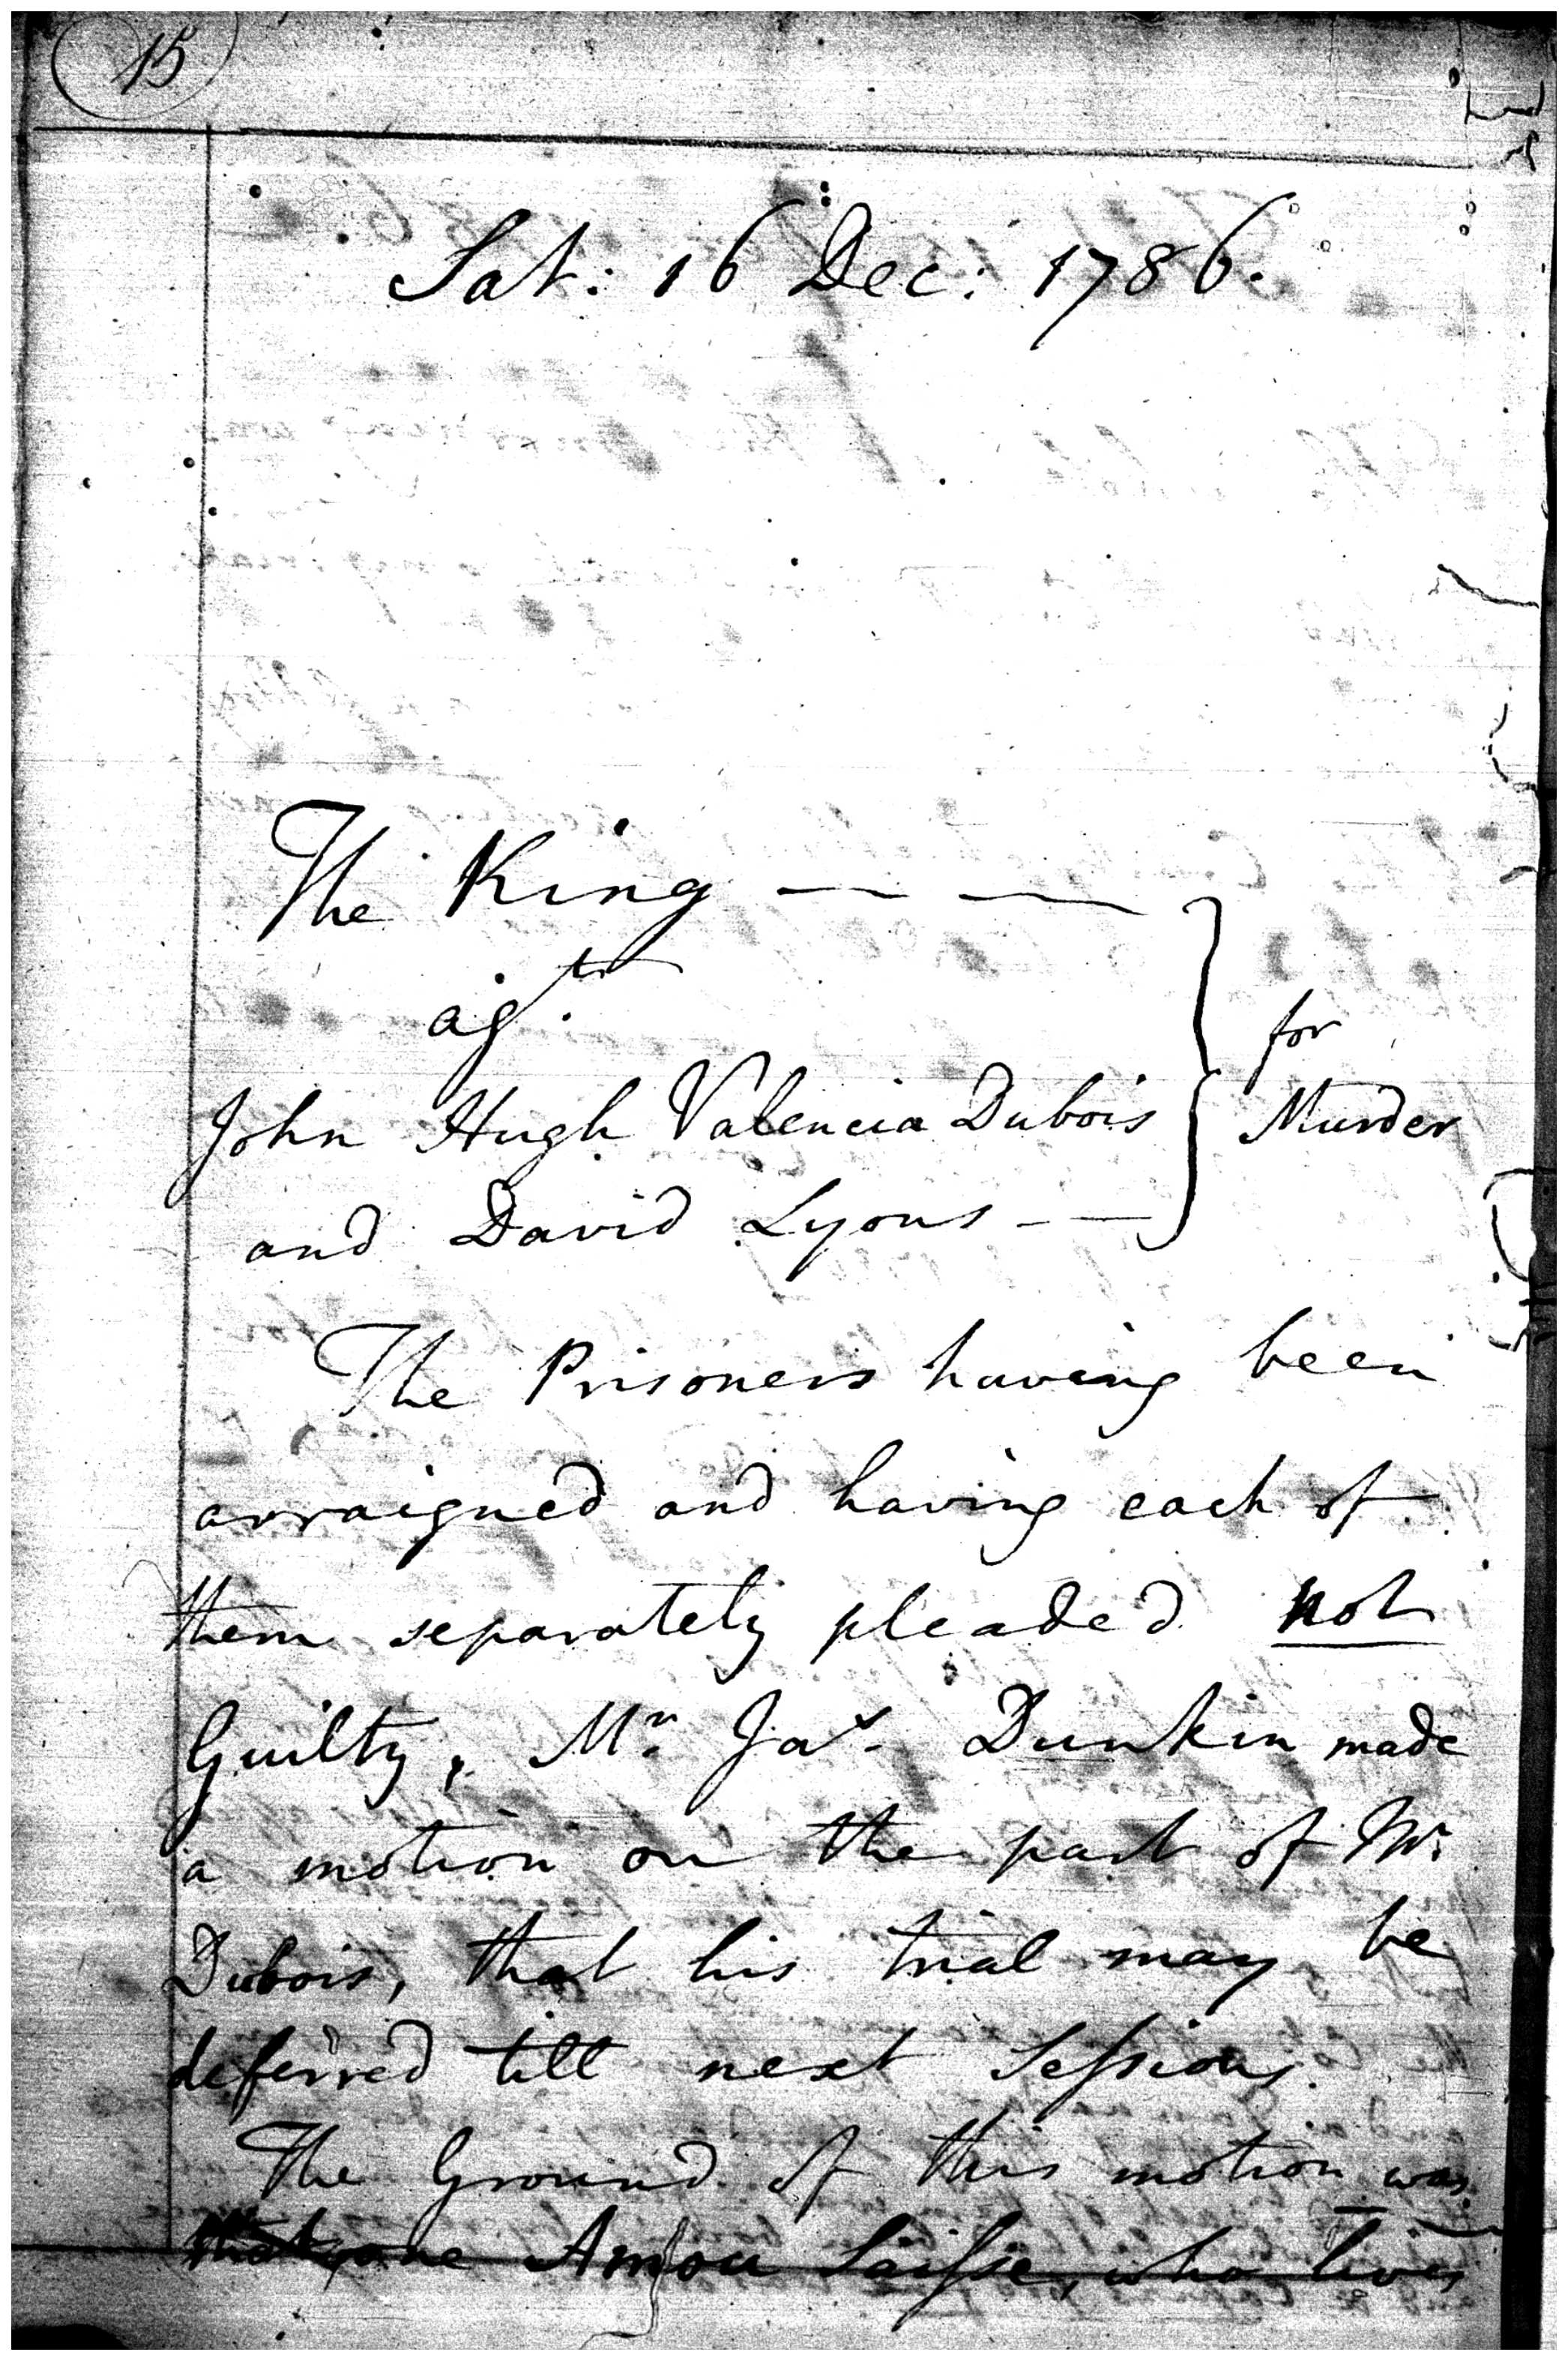 15
Sat: 16 Dec: 1786.
The King — —
agst.
John Hugh Valencia Dubois
and David Lyons - —
for
Murder
The Prisoners having been
arraigned and having each of
them separately pleaded not
Guilty, Mr. Jas. Dunkin made
a motion on the part of Mr.
Dubois, that his trial may be
deferred till next Sessions.
The Ground of this motion was
that one who lives